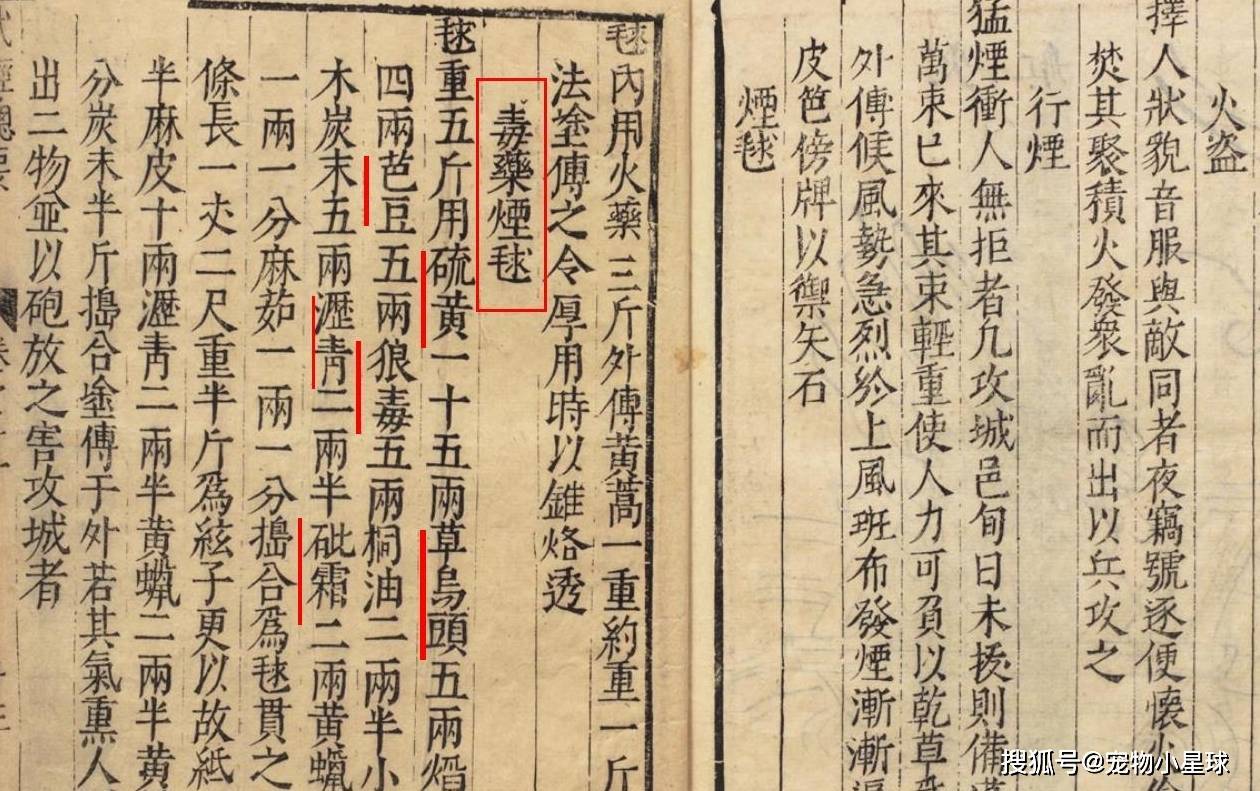 火盗
擇人狀貌音服與敵同者夜竊號逐便懷火偷
焚其聚積火發衆亂而出以兵攻之
行煙
猛煙衝人無拒者凡攻城邑旬日未拔則備
萬束已來其束輕重使人力可負以乾草
外傅候風勢急烈於上風班布發煙漸漸
皮笆傍牌以禦矢石
煙毬
毬內用火藥三斤外傅黃蒿一重約重一斤
法塗傅之令厚用時以錐烙透
毒藥煙毬
毬重五斤用硫黃一十五兩草烏頭五兩焰
四兩芭豆五兩狼毒五兩桐油二兩半小
木炭末五兩瀝青二兩半砒霜二兩黃蠟
一兩一分麻茹一兩一分搗合爲毬貫之
條長一丈二尺重半斤爲絃子更以故紙
半麻皮十兩瀝青二兩半黃蠟二兩半黃
分炭末半斤搗合塗傅于外若其氣熏人
出二物並以砲放之害攻城者
搜狐号@宠物小星球